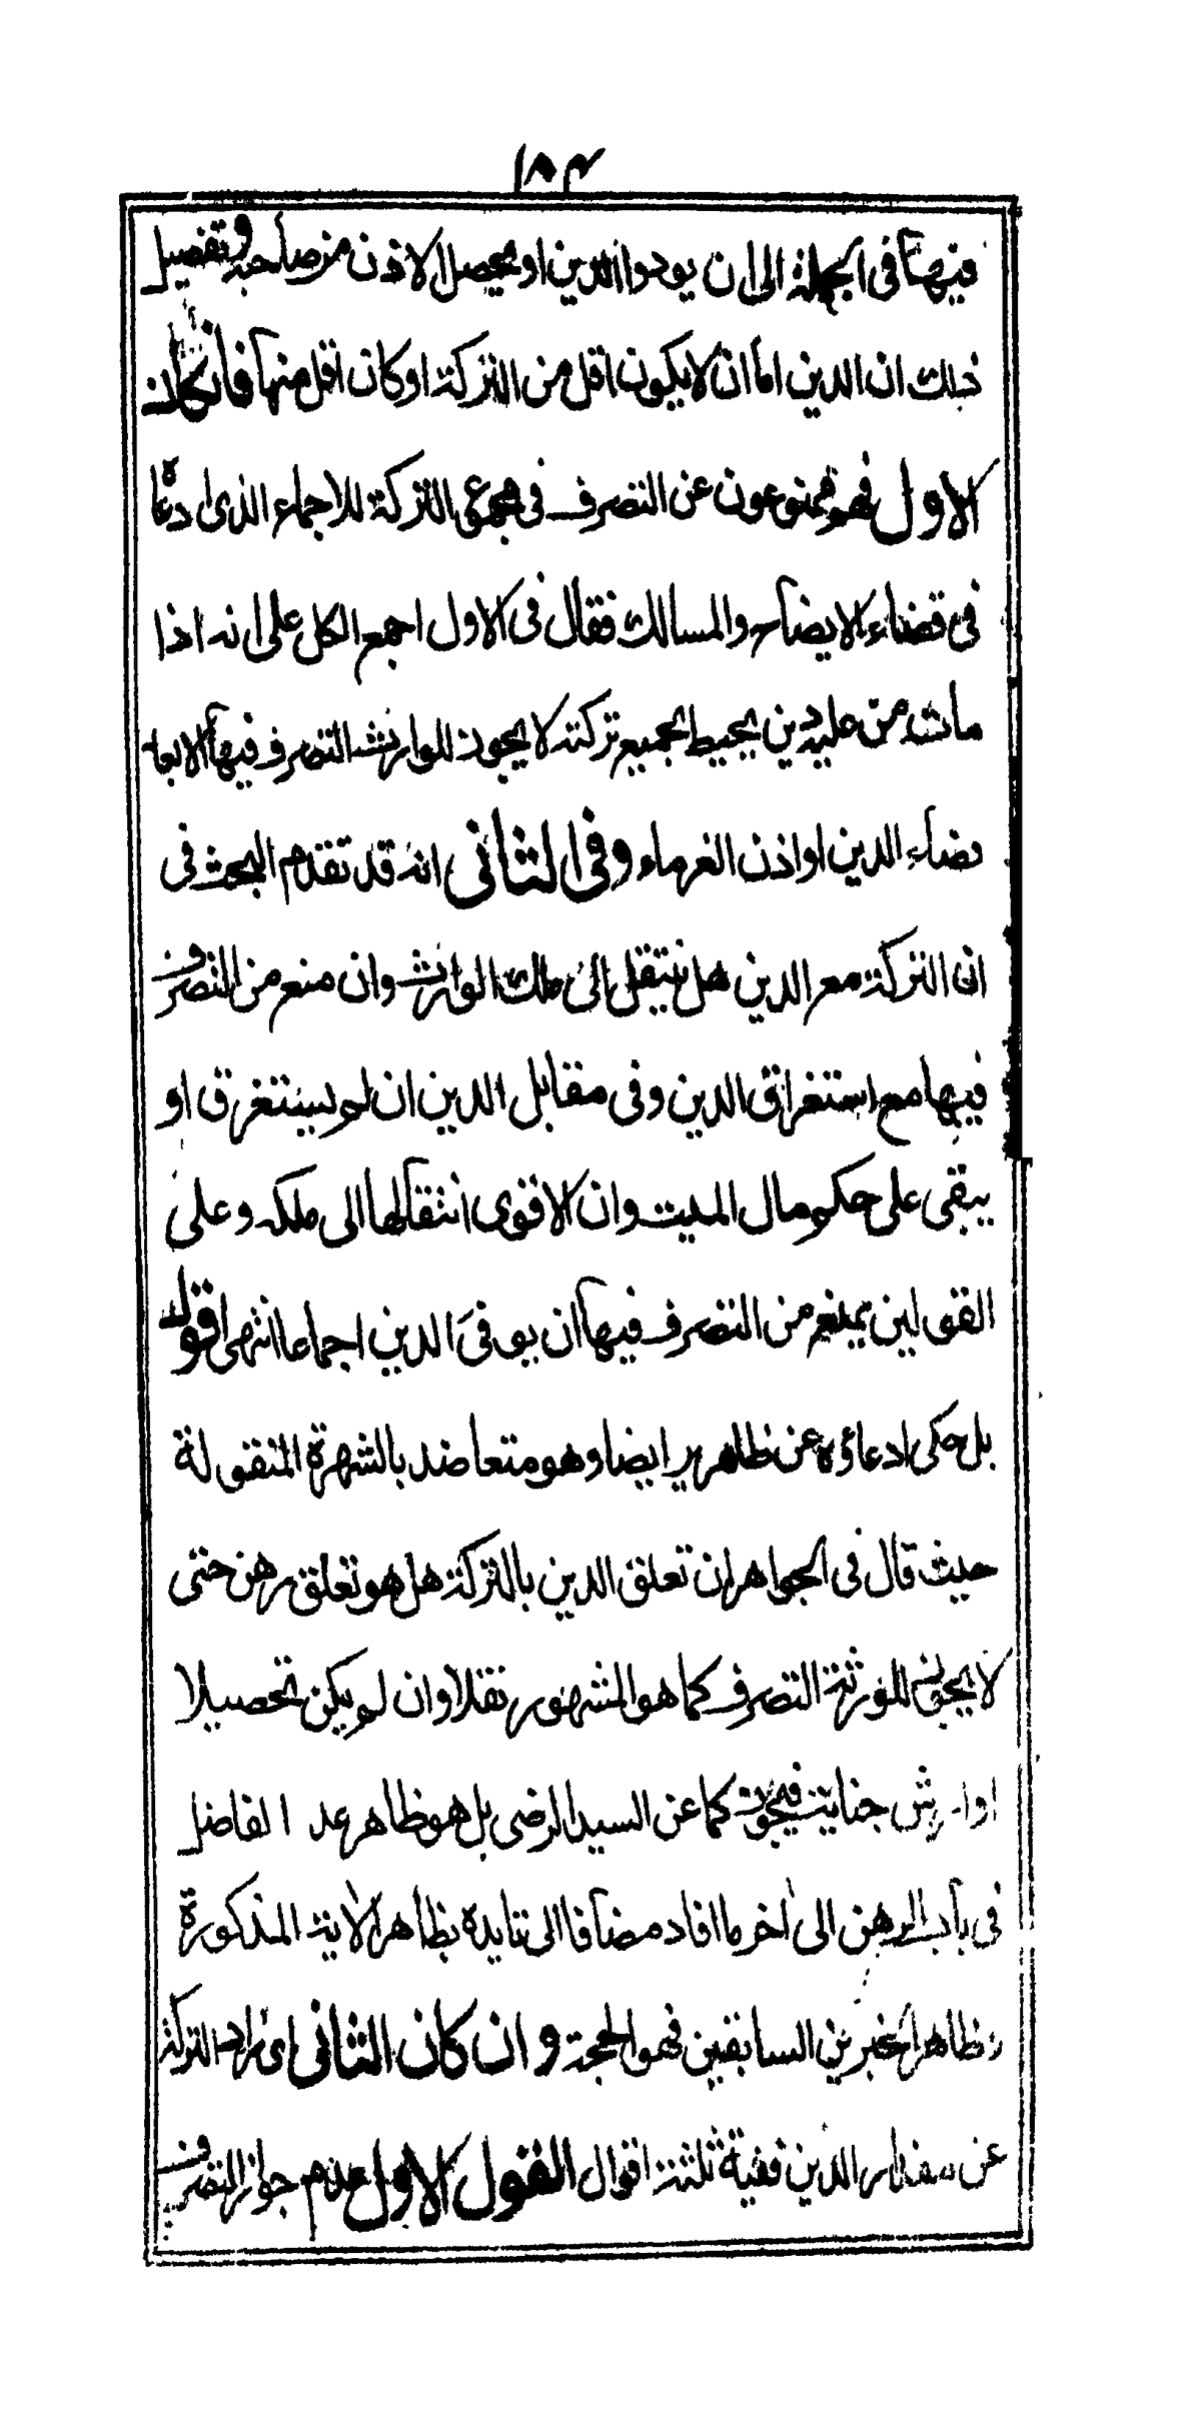 ١٨٣
فيها فى الجملة الى ان يودوا الدين او يحصل الاذن من صاحبه وتفصيل
ذلك ان الدين اما ان لا يكون اقل من التركة او كان اقل منها فان كان
الاول فهو ممنوعون عن التصرف فى مجموع التركة للاجماع الذى ادعاه
فى قضاء الايضاح والمسالك فقال فى الاول اجمع الكل على انه اذا
مات من عليه دين يحيط بجميع تركته لا يجوز للوارث التصرف فيها الا بعد
قضاء الدين او اذن الغرماء وفى الثانى انه قد تقدم البحث فى
ان التركة مع الدين هل ينتقل الى ملك الوارث وان منع من التصرف
فيها مع استغراق الدين وفى مقابل الدين ان لم يستغرق او
يبقى على حكم مال الميت وان الاقوى انتقالها الى ملكه وعلى
القولين يمنع من التصرف فيها ان يوفى الدين اجماعا انتهى اقول
بل حكى ادعاؤه عن ظاهر ير ايضا وهو متعاضد بالشهرة المنقولة
حيث قال فى الجواهر ان تعلق الدين بالتركة هل هو تعلق رهن حتى
لا يجوز للورثة التصرف كما هو المشهور نقلا وان لم يكن تحصيلا
او ارش جناية فيجوز كما عن السيد الرضى بل هو ظاهر عد الفاضل
فى باب الرهن الى اخر ما افاد مضافا الى تايده بظاهر الاية المذكورة
وظاهر الخبرين السابقين فهو الحجة وان كان الثانى اى زاد التركة
عن مقدار الدين ففيه ثلثة اقوال القول الاول عدم جواز التصرف